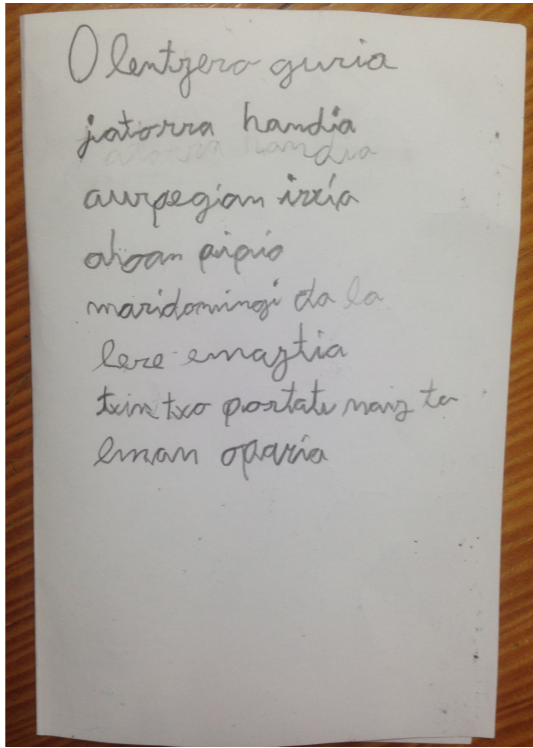 Olentzero guria
jatorra handia
aurpegian irria
ahoan pipia
maridomingi da la
bere emaztia
txintxo portatu naiz ta
eman oparia